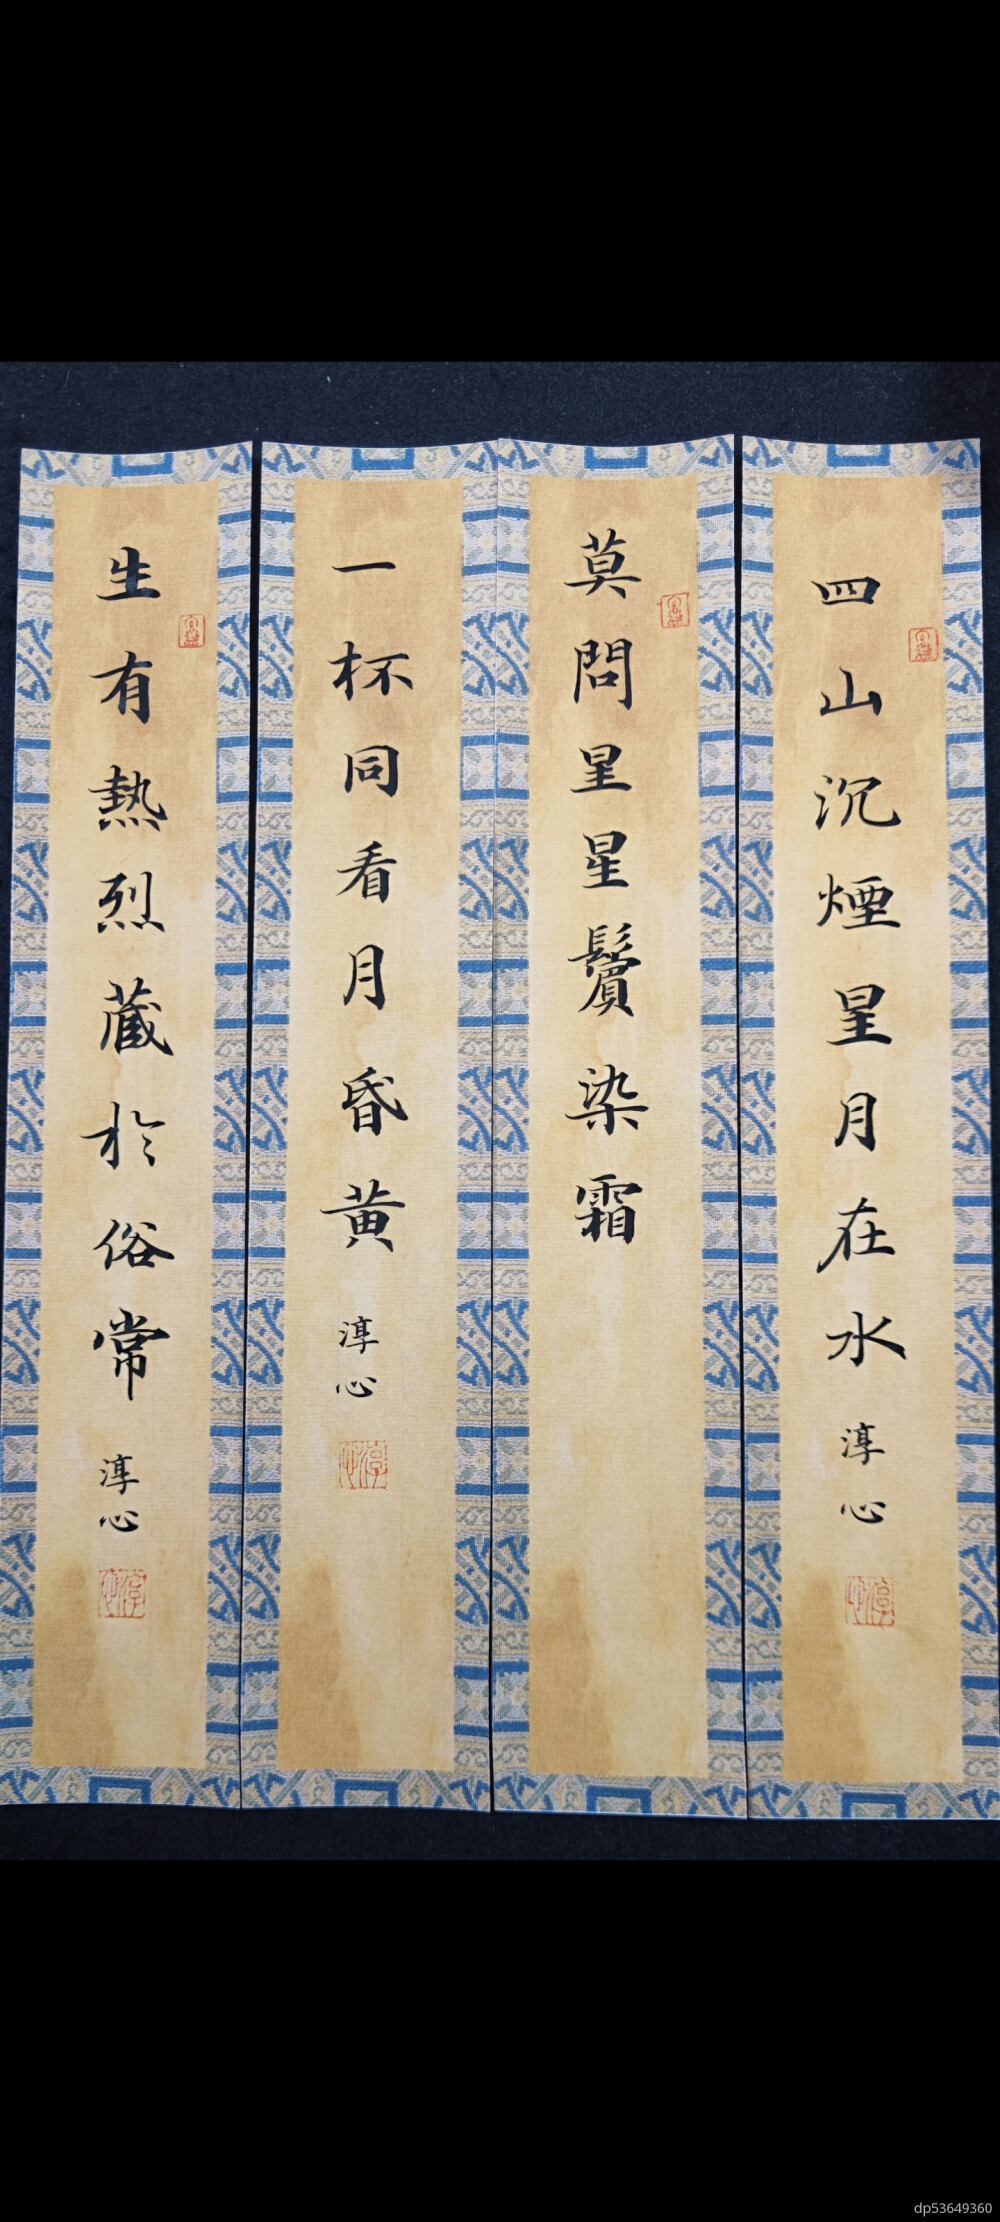 四山沉煙星月在水
淳心
莫問星星鬢染霜
一杯同看月昏黄
淳心
生有熱烈藏於俗常
淳心
dp53649360